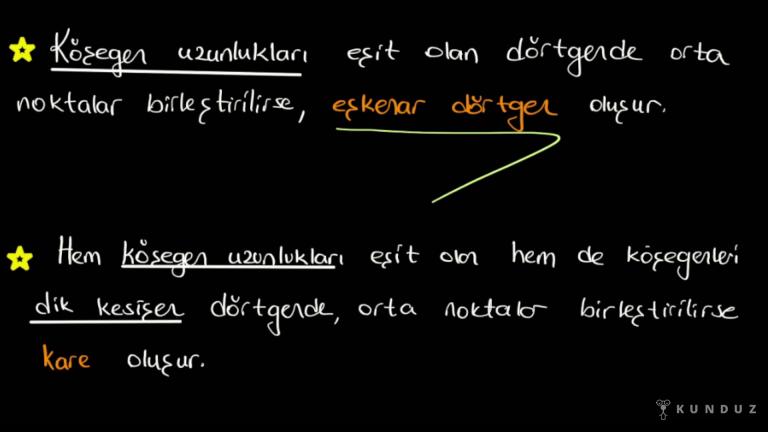 Köşegen uzunlukları eşit olan dörtgende orta
noktalar birleştirilirse, eşkenar dörtgen oluşur.
Hem köşegen uzunlukları eşit olan hem de köşegenleri
dik kesişen dörtgende, orta noktalar birleştirilirse
kare oluşur.
KUNDUZ